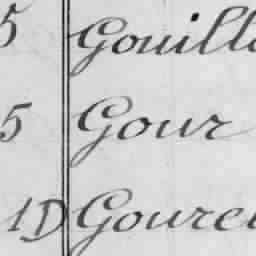 5 Gouill
5 Gour
1D Gource